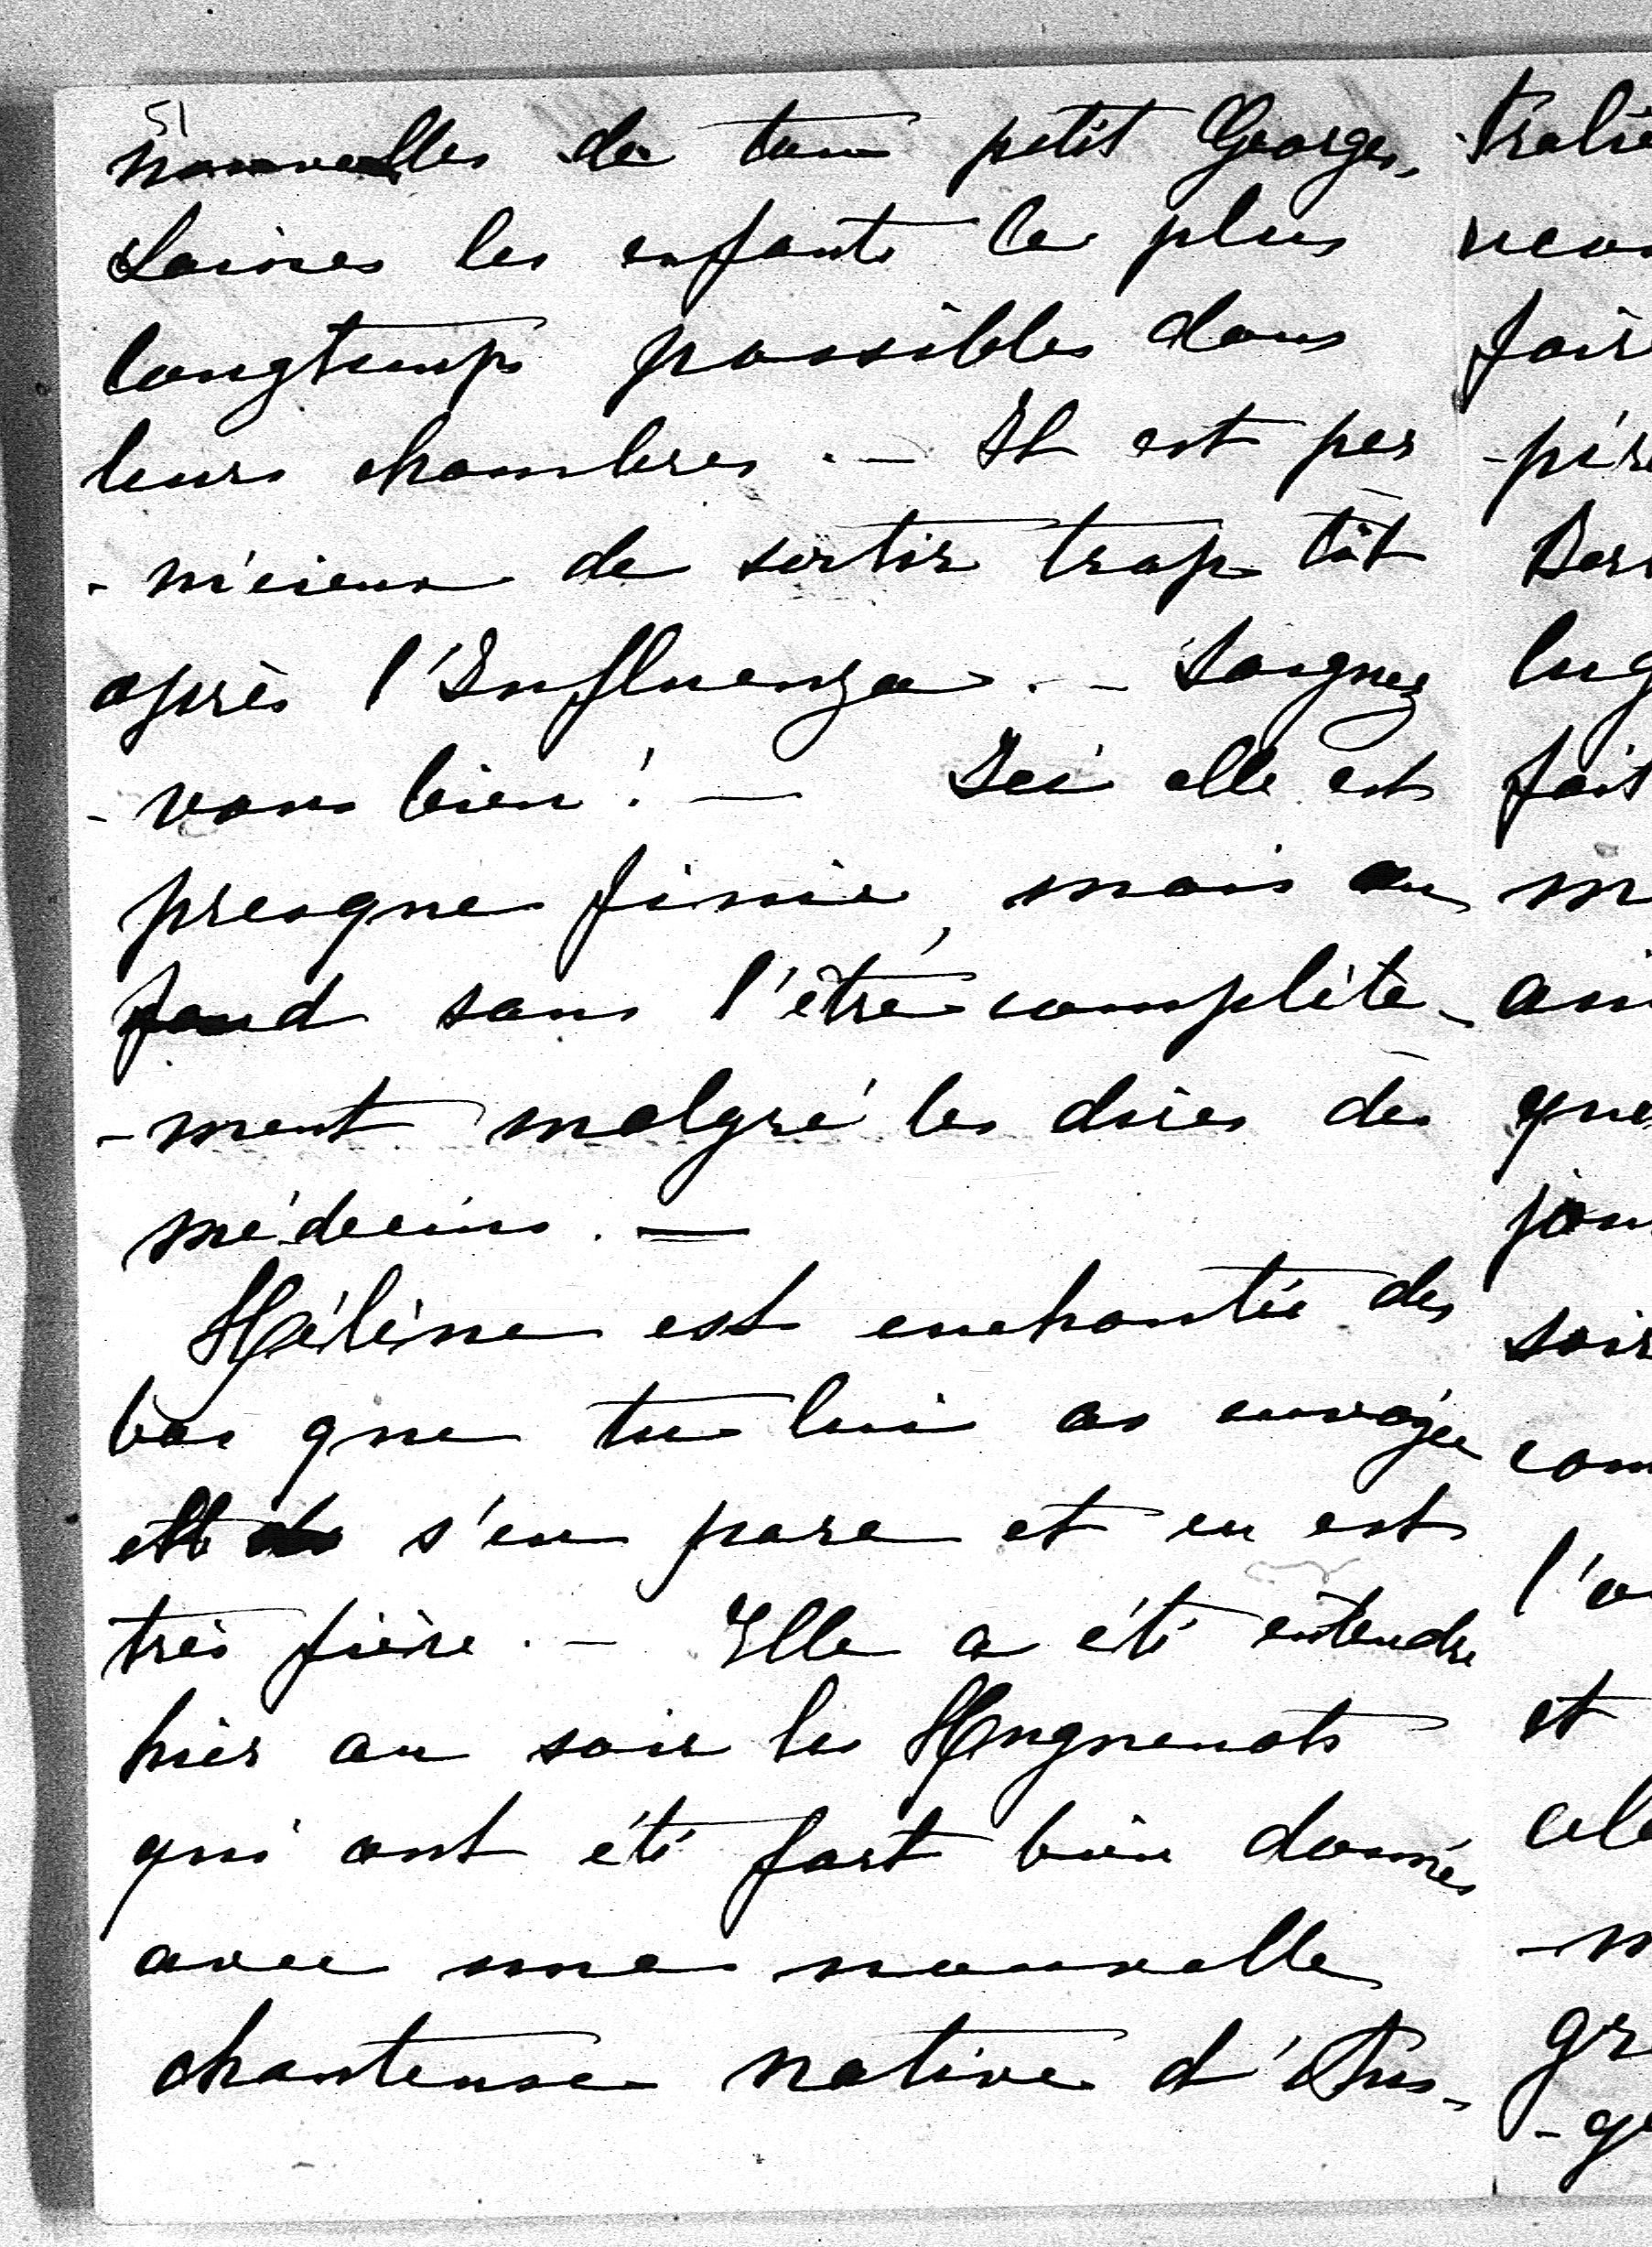 51
nouvelles de ton petit Georges.
Laisses les enfants le plus
longtemps possibles dans
leurs chambres. — Il est per
- nicieux de sortir trop tôt
après l'Influenza. — Soignez
- vous bien! — Ici elle est
presque finie, mais au
fond sans l'être complète-
- ment malgré les dires des
médecins. —
Hélène est enchantée des
bas que tu lui as envoyée
elle s'en pare et en est
très fière. — Elle a été entendre
hier au soir les Huguenots
qui ont été fort bien donnés
avec une nouvelle
chanteuse native d'Aus-
tralie
neu
fair
- pire
Ber
lug
fait
m
ani
que
jou
soir
com
l'o
et
cela
- m
gr
- ge